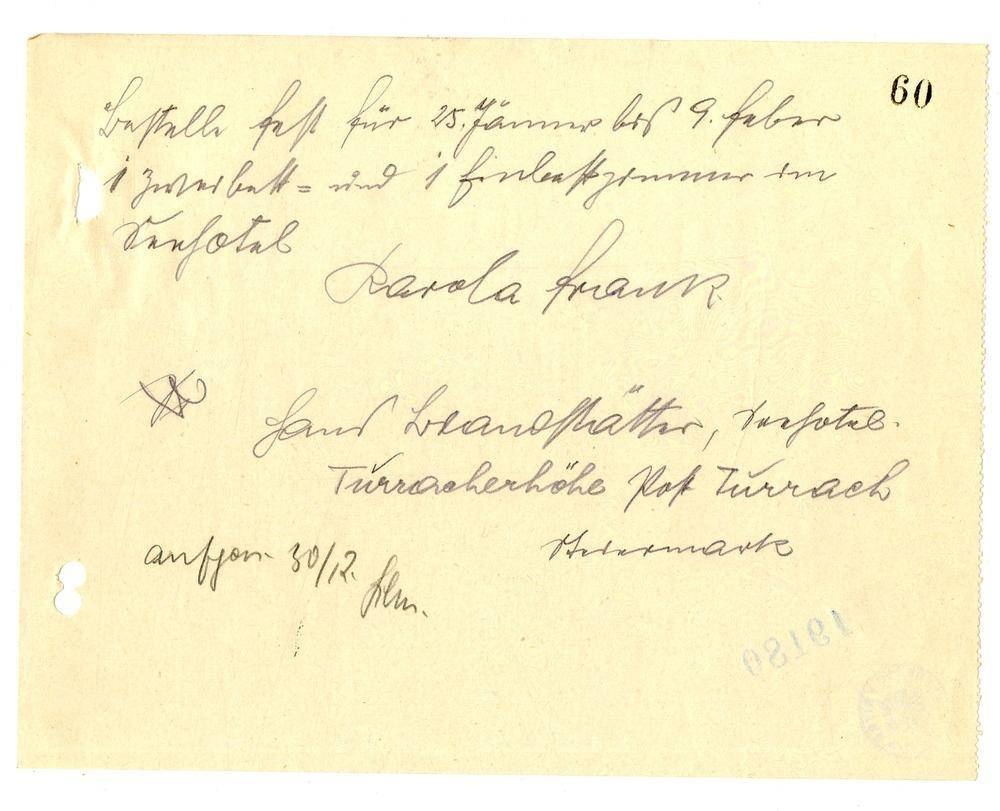 60
Bestelle fest für 25. Jänner bis 9. Feber
1 Zweibett= und 1 Einbettzimmer im
Seehotel
Karola Frank
Hans Brandstätter, Seehotel.
Turracherhöhe Post Turrach
Steiermark
30/12.
19180